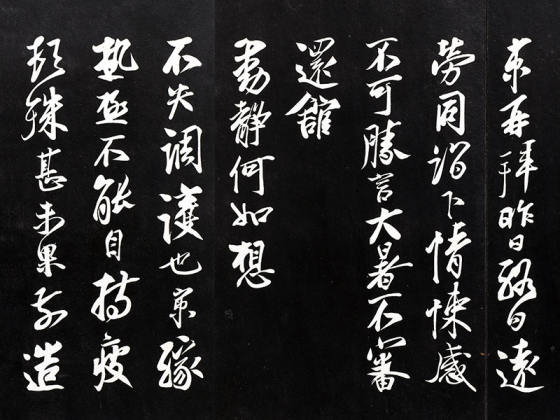 京再拜昨日終日遠
勞同詣下情悚感
不可勝言大暑不審
還館
動靜何如想
不失調護也京緣
熱極不能自持疲
頓殊甚未果前造